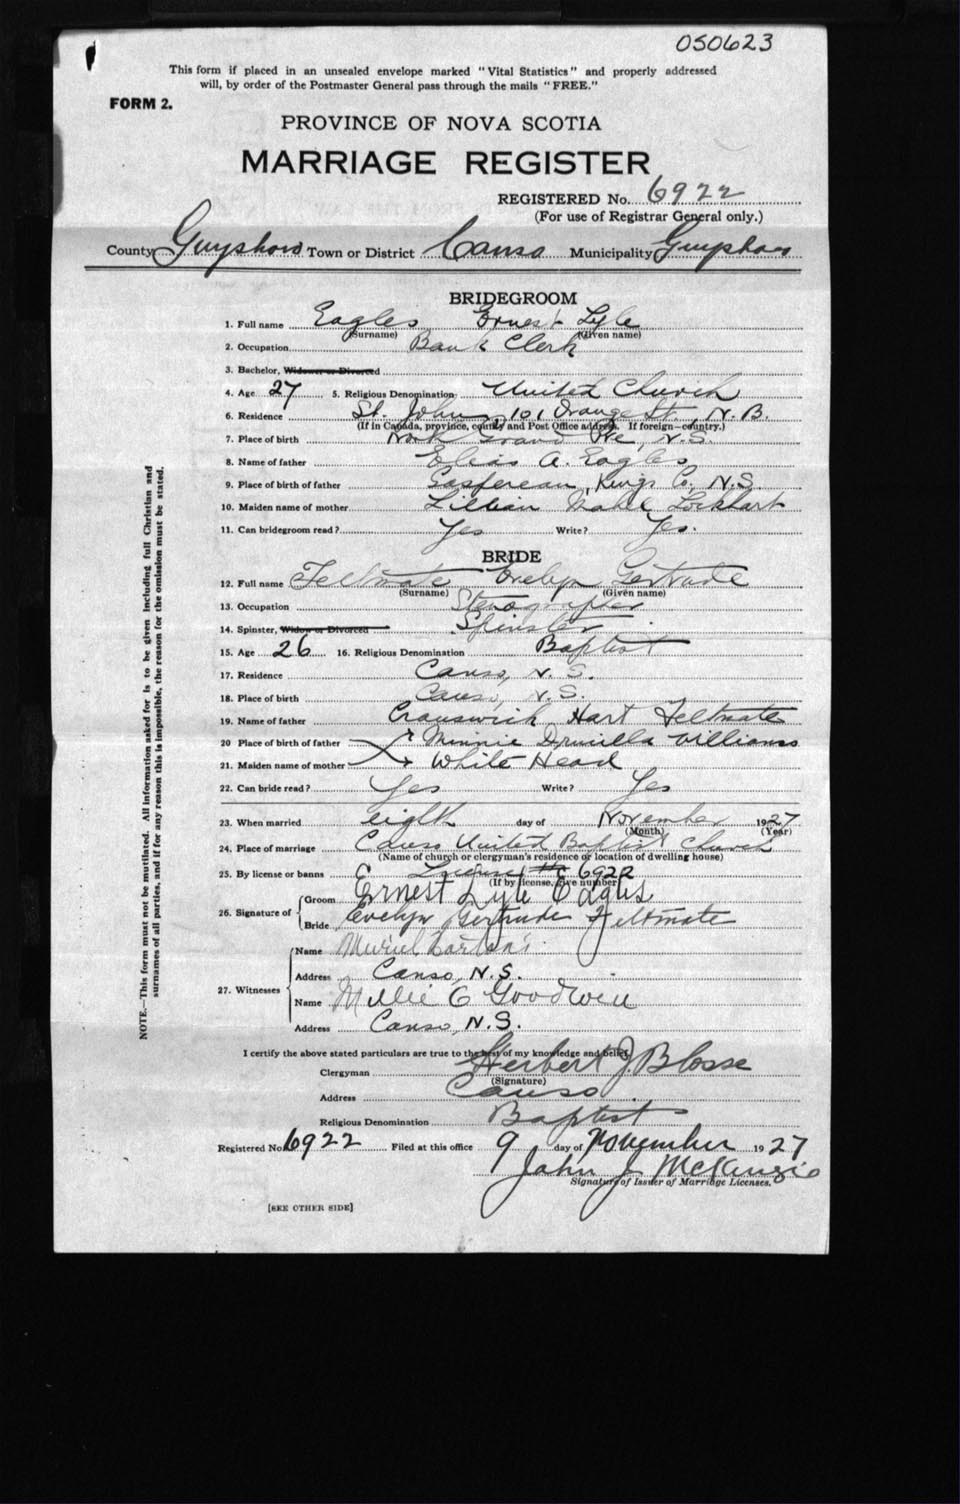 050623
This form if placed in an unsealed envelope marked "Vital Statistics" and properly addressed
will, by order of the Postmaster General pass through the mails "FREE."
FORM 2.
PROVINCE OF NOVA SCOTIA
MARRIAGE REGISTER
REGISTERED No. 6922
(For use of Registrar General only.)
County Guysboro Town or District Canso Municipality Guysboro
BRIDEGROOM
1. Full name Eagles Ernest Lyle
(Surname) (Given name)
2. Occupation Bank Clerk
3. Bachelor, Widower or Divorced
4. Age 27 5. Religious Denomination United Church
6. Residence St. John, 101 Orange St. N.B.
(If in Canada, province, county and Post Office address. If foreign—country.)
7. Place of birth Grand Pre, N.S.
8. Name of father Elias A. Eagles
9. Place of birth of father Gaspereau, Kings Co. N.S.
10. Maiden name of mother Lillian Mabel Lockhart
11. Can bridegroom read? Yes Write? Yes.
BRIDE
12. Full name Feltmate Evelyn Gertrude
(Surname) (Given name)
13. Occupation Stenographer
14. Spinster, Widow or Divorced Spinster
15. Age 26 16. Religious Denomination Baptist
17. Residence Canso, N.S.
18. Place of birth Canso, N.S.
19. Name of father Hart Feltmate
20 Place of birth of father Minnie Drucilla Williams
21. Maiden name of mother White Head
22. Can bride read? Yes Write? Yes
23. When married eighth day of November 1927
(Month) (Year)
24. Place of marriage Canso United Baptist Church
(Name of church or clergyman's residence or location of dwelling house)
25. By license or banns License 6922
(If by license, give number)
26. Signature of Groom Ernest Lyle Eagles
Bride Evelyn Gertrude Feltmate
27. Witnesses
Name Muriel
Address Canso, N.S.
Name C Goodwin
Address Canso, N.S.
I certify the above stated particulars are true to the best of my knowledge and belief.
Clergyman Herbert J. Blosse
(Signature)
Address Canso
Religious Denomination Baptist
Registered No. 6922 Filed at this office 9 day of November 1927
John J McKenzie
Signature of Issuer of Marriage Licenses.
[SEE OTHER SIDE]
NOTE.—This form must not be mutilated. All information asked for is to be given including full Christian and
surnames of all parties, and if for any reason this is impossible, the reason for the omission must be stated.